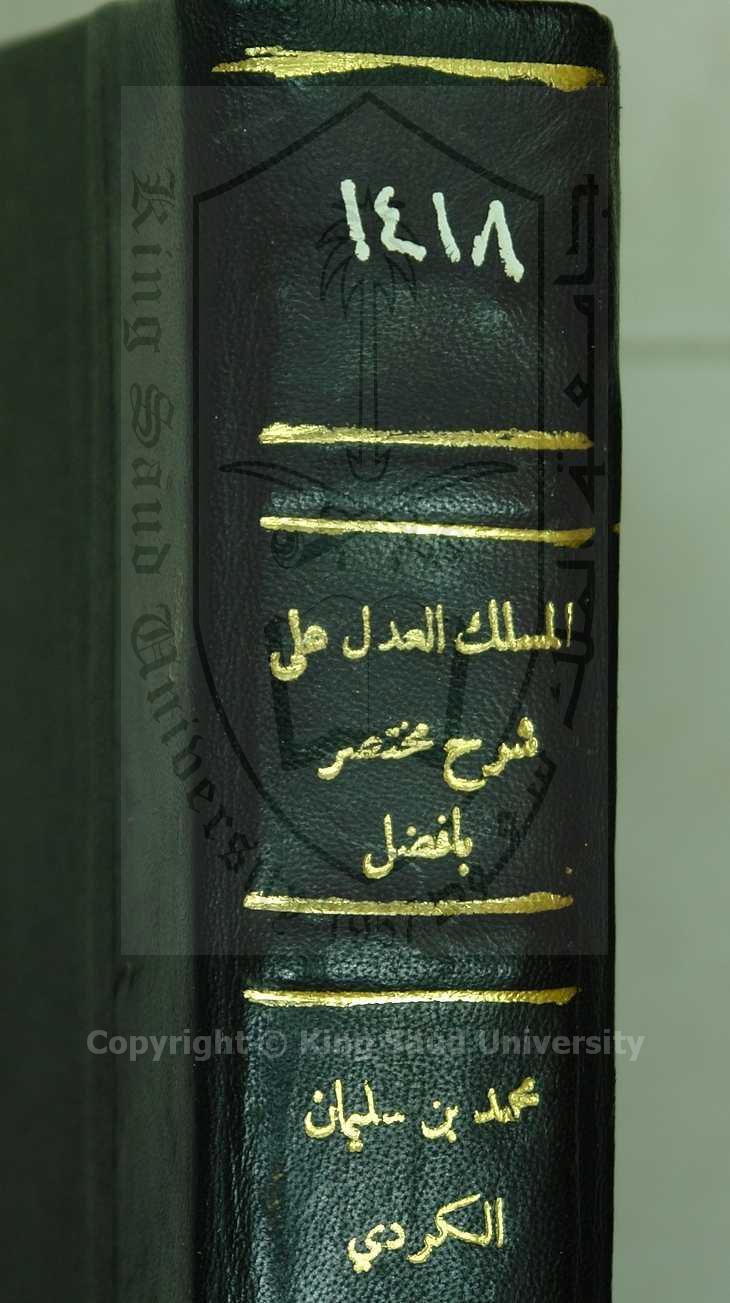 ١٤١٨
المسلك العدل على
شرح مختصر
بافضل
محمد بن سليمان
الكردي
King Saud University
جامعة الملك سعود
1957
Copyright © King Saud University